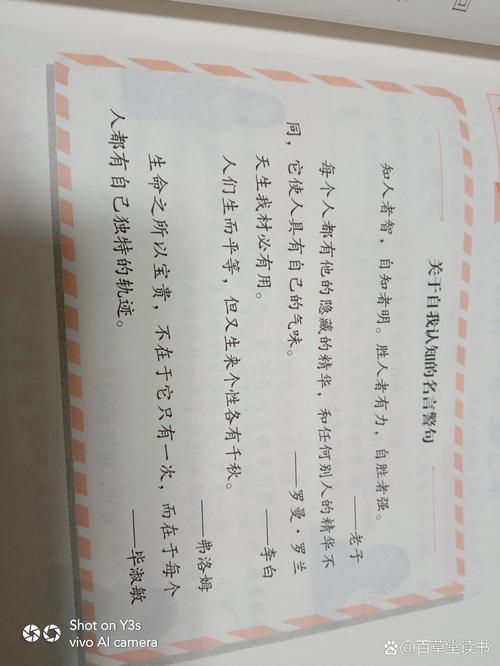 关于自我认知的名言警句
知人者智，自知者明。胜人者有力，自胜者强。
——老子
每个人都有他的隐藏的精华，和任何别人的精华不
同，它使人具有自己的气味。
——罗曼·罗兰
天生我材必有用。
——李白
人们生而平等，但又生来个性各有千秋。
——弗洛姆
生命之所以宝贵，不在于它只有一次，而在于每个
人都有自己独特的轨迹。
——毕淑敏
Shot on Y3s
vivo AI camera
百草堂读书